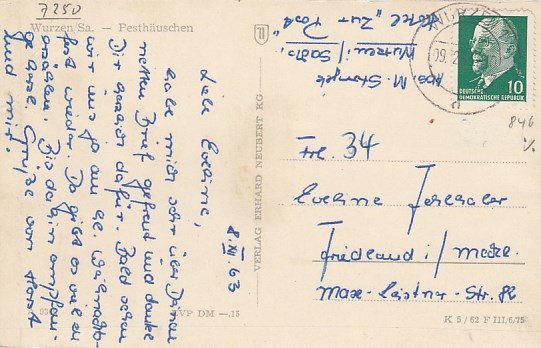 7250
Wurzen Sa. — Pesthäuschen
8. XII. 63
Liebe Eveline,
habe mich sehr über Deinen
netten Brief gefreut und danke
Dir herzlich dafür. Bald sehen
wir uns ja am hl. Weihnachts-
fest wieder. Da gibt es viel zu
erzählen. Bis dahin empfan-
ge herzl. Grüße von Horst
und mir.
VERLAG ERHARD NEUBERT KG
EVP DM —.15
Abs. M.
Wurzen i/Sa.
Hotel „Zur Post"
DEUTSCHE
DEMOKRATISCHE REPUBLIK
10
846
Frl. 34
Eveline
Friedland i/Meckl.
Str. 82
K 5/62 F III/6/75